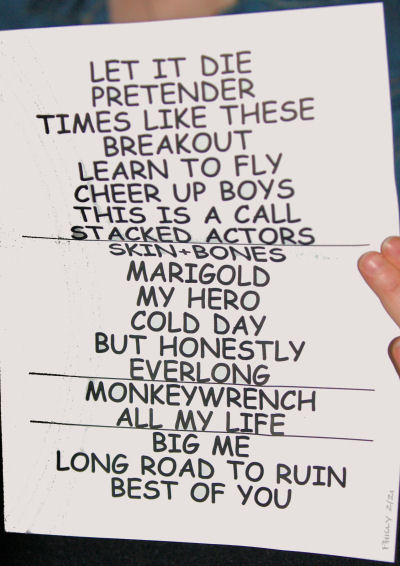 LET IT DIE
PRETENDER
TIMES LIKE THESE
BREAKOUT
LEARN TO FLY
CHEER UP BOYS
THIS IS A CALL
STACKED ACTORS
SKIN+BONES
MARIGOLD
MY HERO
COLD DAY
BUT HONESTLY
EVERLONG
MONKEYWRENCH
ALL MY LIFE
BIG ME
LONG ROAD TO RUIN
BEST OF YOU
PHILLY